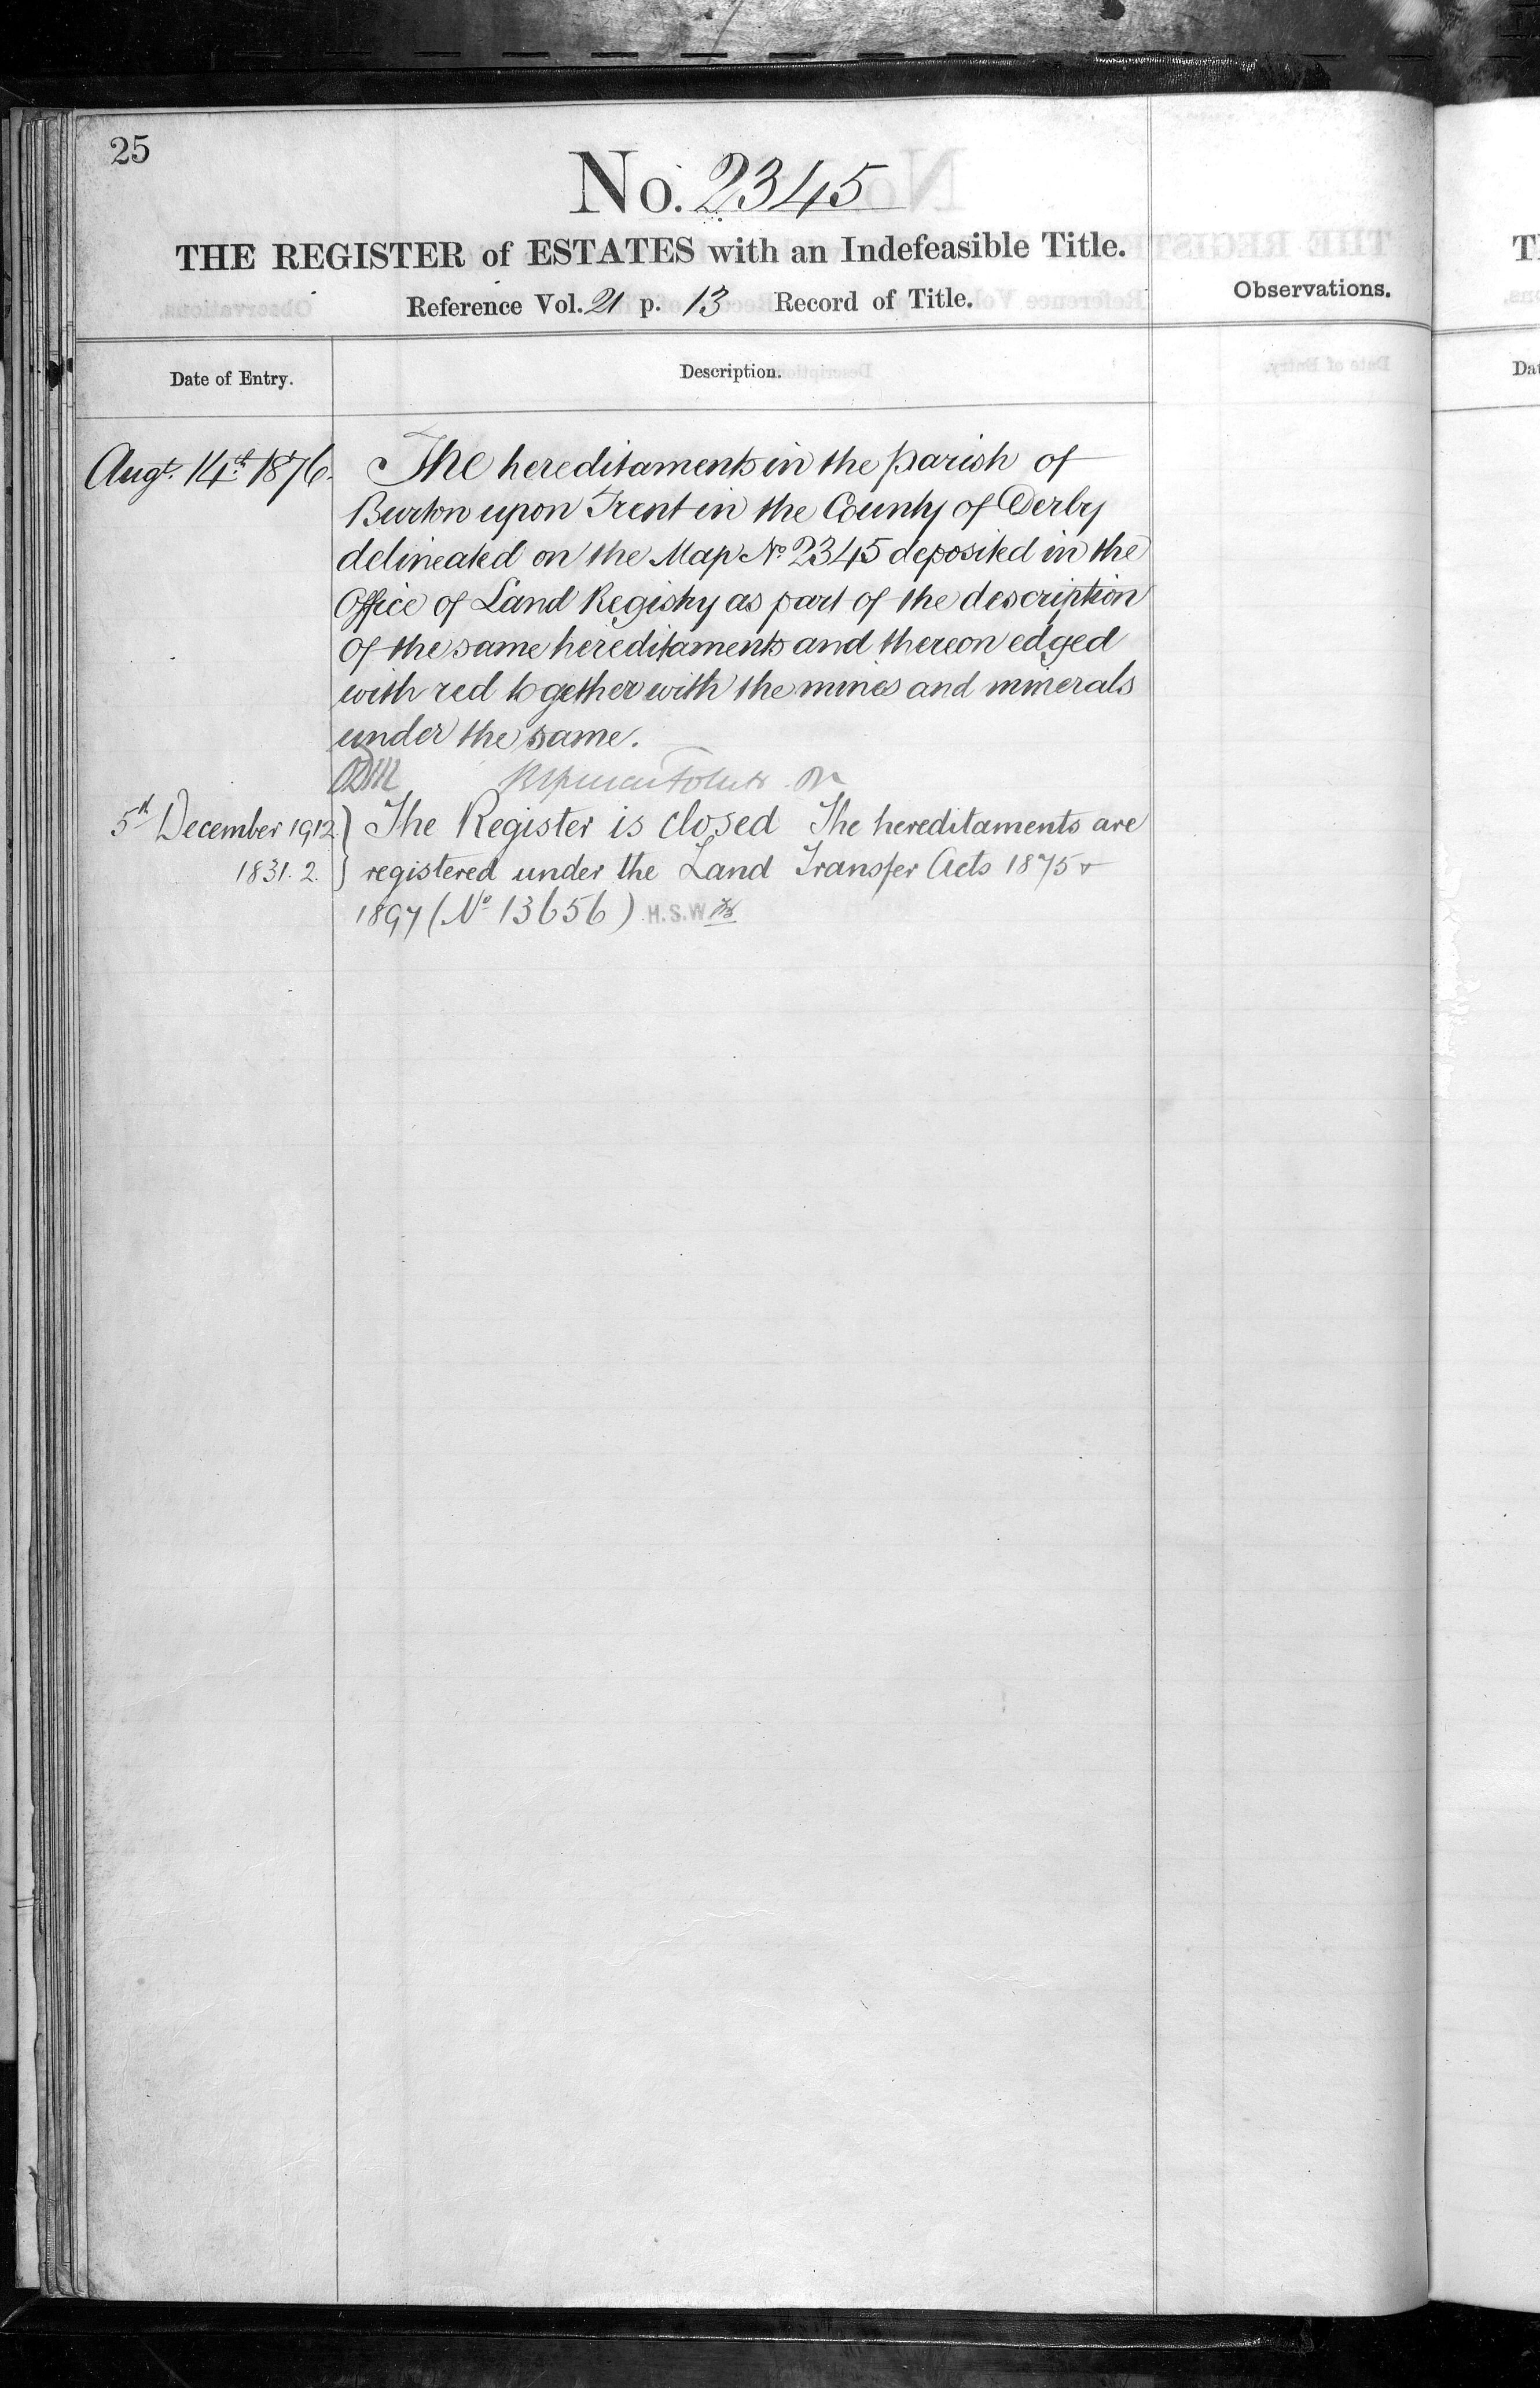 25
No. 2345
THE REGISTER of ESTATES with an Indefeasible Title.
Reference Vol. 21 p. 13 Record of Title.
Observations.
Date of Entry.
Description.
Augt. 14th 1876.
The hereditaments in the parish of
Burton upon Trent in the County of Derby
delineated on the Map No 2345 deposited in the
Office of Land Registry as part of the description
of the same hereditaments and thereon edged
with red together with the mines and minerals
under the same.
5th December 1912
1831.2.
The Register is closed The hereditaments are
registered under the Land Transfer Acts 1875 &
1897 (No 13656) H.S.W